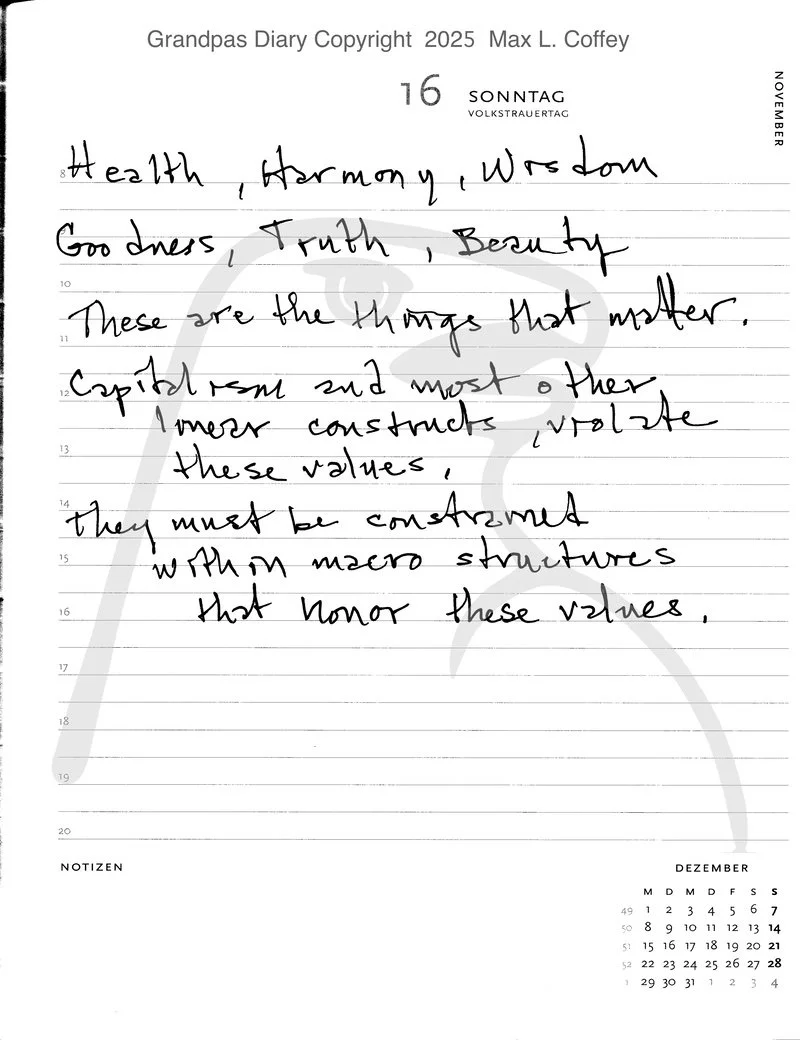 Grandpas Diary Copyright 2025 Max L. Coffey
16 SONNTAG
VOLKSTRAUERTAG
NOVEMBER
8 Health, Harmony, Wisdom
Goodness, Truth, Beauty
10
These are the things that matter.
11
Capitalism and most other
12
linear constructs, violate
13
these values.
14
they must be constrained
15
within macro structures
16
that honor these values.
17
18
19
20
NOTIZEN
DEZEMBER
M D M D F S S
49 1 2 3 4 5 6 7
50 8 9 10 11 12 13 14
51 15 16 17 18 19 20 21
52 22 23 24 25 26 27 28
1 29 30 31 1 2 3 4